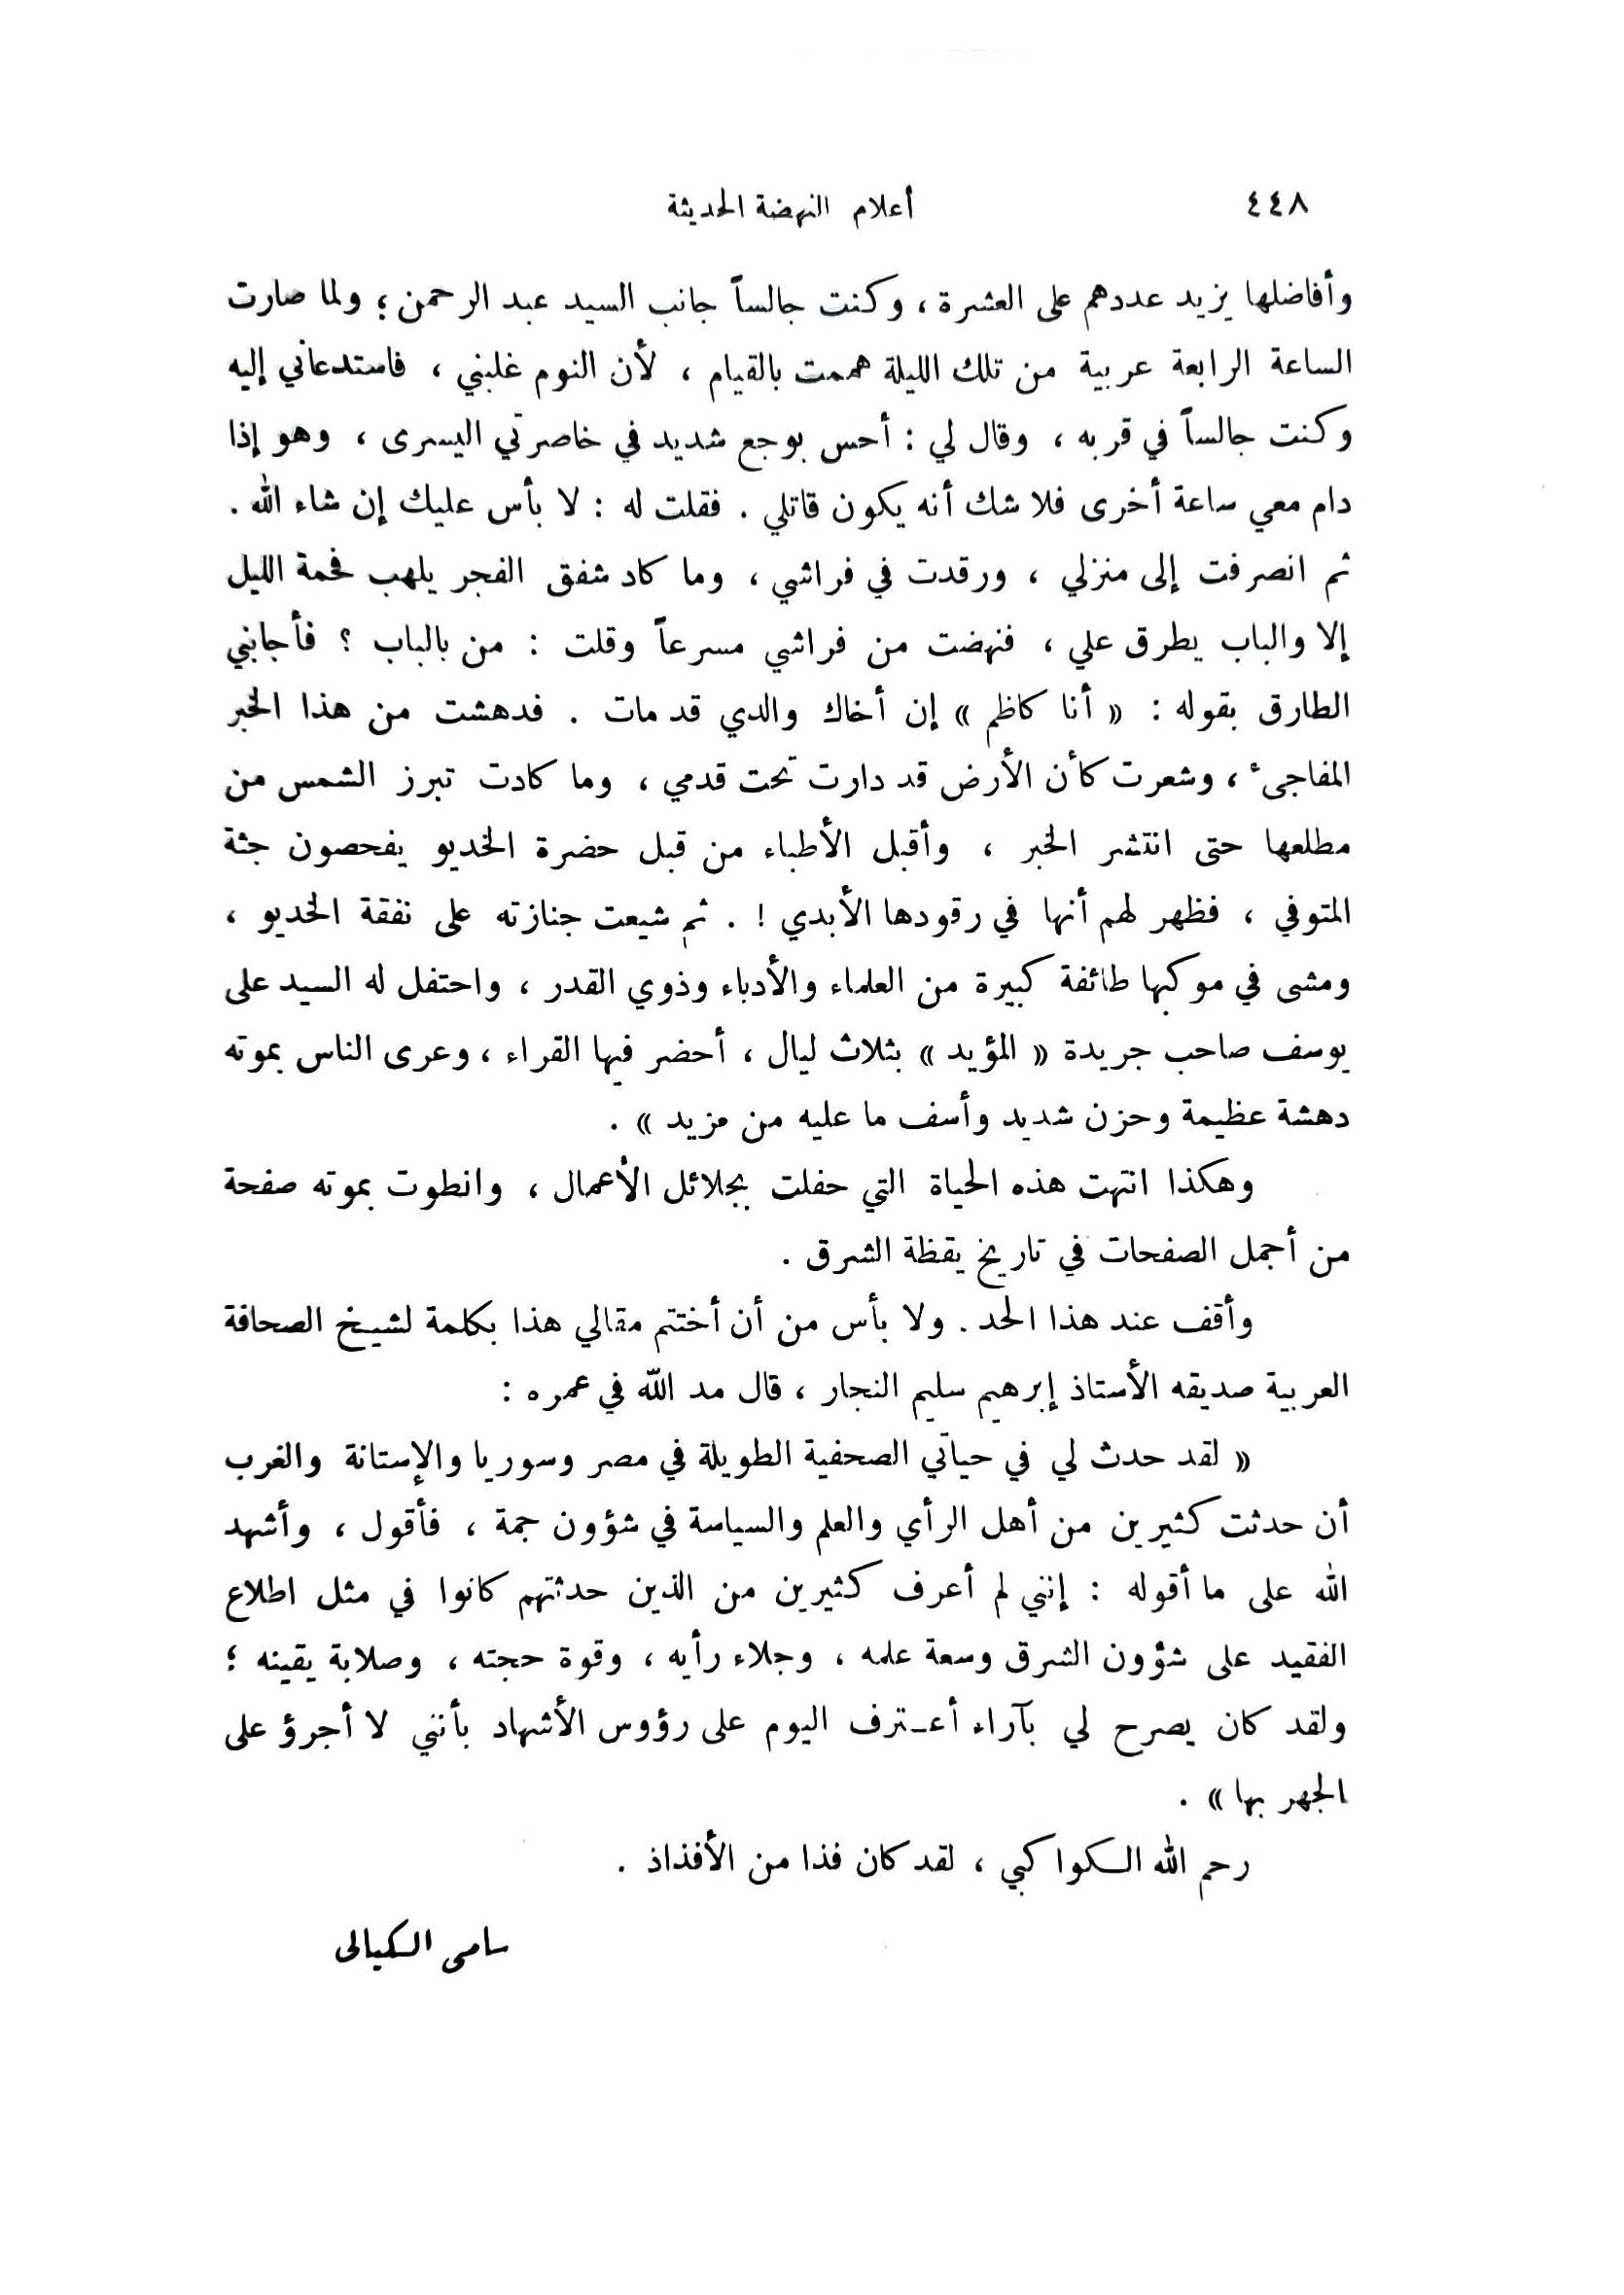 ٤٤٨
أعلام النهضة الحديثة
وأفاضلها يزيد عددهم على العشرة ، وكنت جالساً جانب السيد عبد الرحمن ؛ ولما صارت
الساعة الرابعة عربية من تلك الليلة هممت بالقيام ، لأن النوم غلبني ، فاستدعاني إليه
وكنت جالساً في قربه ، وقال لي : أحس بوجع شديد في خاصرتي اليسرى ، وهو إذا
دام معي ساعة أخرى فلا شك أنه يكون قاتلي . فقلت له : لا بأس عليك إن شاء الله .
ثم انصرفت إلى منزلي ، ورقدت في فراشي ، وما كاد شفق الفجر يلهب فحمة الليل
إلا والباب يطرق علي ، فنهضت من فراشي مسرعاً وقلت : من بالباب ؟ فأجابني
الطارق بقوله : « أنا كاظم » إن أخاك والدي قد مات . فدهشت من هذا الخبر
المفاجىء ، وشعرت كأن الأرض قد دارت تحت قدمي ، وما كادت تبرز الشمس من
مطلعها حتى انتشر الخبر ، وأقبل الأطباء من قبل حضرة الخديو يفحصون جثة
المتوفي ، فظهر لهم أنها في رقودها الأبدي ! . ثم شيعت جنازته على نفقة الخديو ،
ومشى في موكبها طائفة كبيرة من العلماء والأدباء وذوي القدر ، واحتفل له السيد على
يوسف صاحب جريدة « المؤيد » بثلاث ليال ، أحضر فيها القراء ، وعرى الناس بموته
دهشة عظيمة وحزن شديد وأسف ما عليه من مزيد » .
وهكذا انتهت هذه الحياة التي حفلت بجلائل الأعمال ، وانطوت بموته صفحة
من أجمل الصفحات في تاريخ يقظة الشرق .
وأقف عند هذا الحد . ولا بأس من أن أختتم مقالي هذا بكلمة لشيخ الصحافة
العربية صديقه الأستاذ إبرهيم سليم النجار ، قال مد الله في عمره :
« لقد حدث لي في حياتي الصحفية الطويلة في مصر وسوريا والإستانة والغرب
أن حدثت كثيرين من أهل الرأي والعلم والسياسة في شؤون جمة ، فأقول ، وأشهد
الله على ما أقوله : إنني لم أعرف كثيرين من الذين حدثتهم كانوا في مثل اطلاع
الفقيد على شؤون الشرق وسعة علمه ، وجلاء رأيه ، وقوة حجته ، وصلابة يقينه ؛
ولقد كان يصرح لي بآراء أعـترف اليوم على رؤوس الأشهاد بأنني لا أجرؤ على
الجهر بها » .
رحم الله الكواكبي ، لقد كان فذا من الأفذاذ .
سامى الكيالى